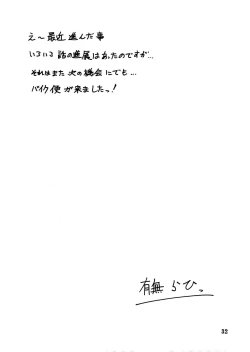 え〜最近進んだ事
いろいろ話の進展はあったのですが…
それはまた次の機会にでも…
バイク便が来ましたっ!
有無らひっ
32